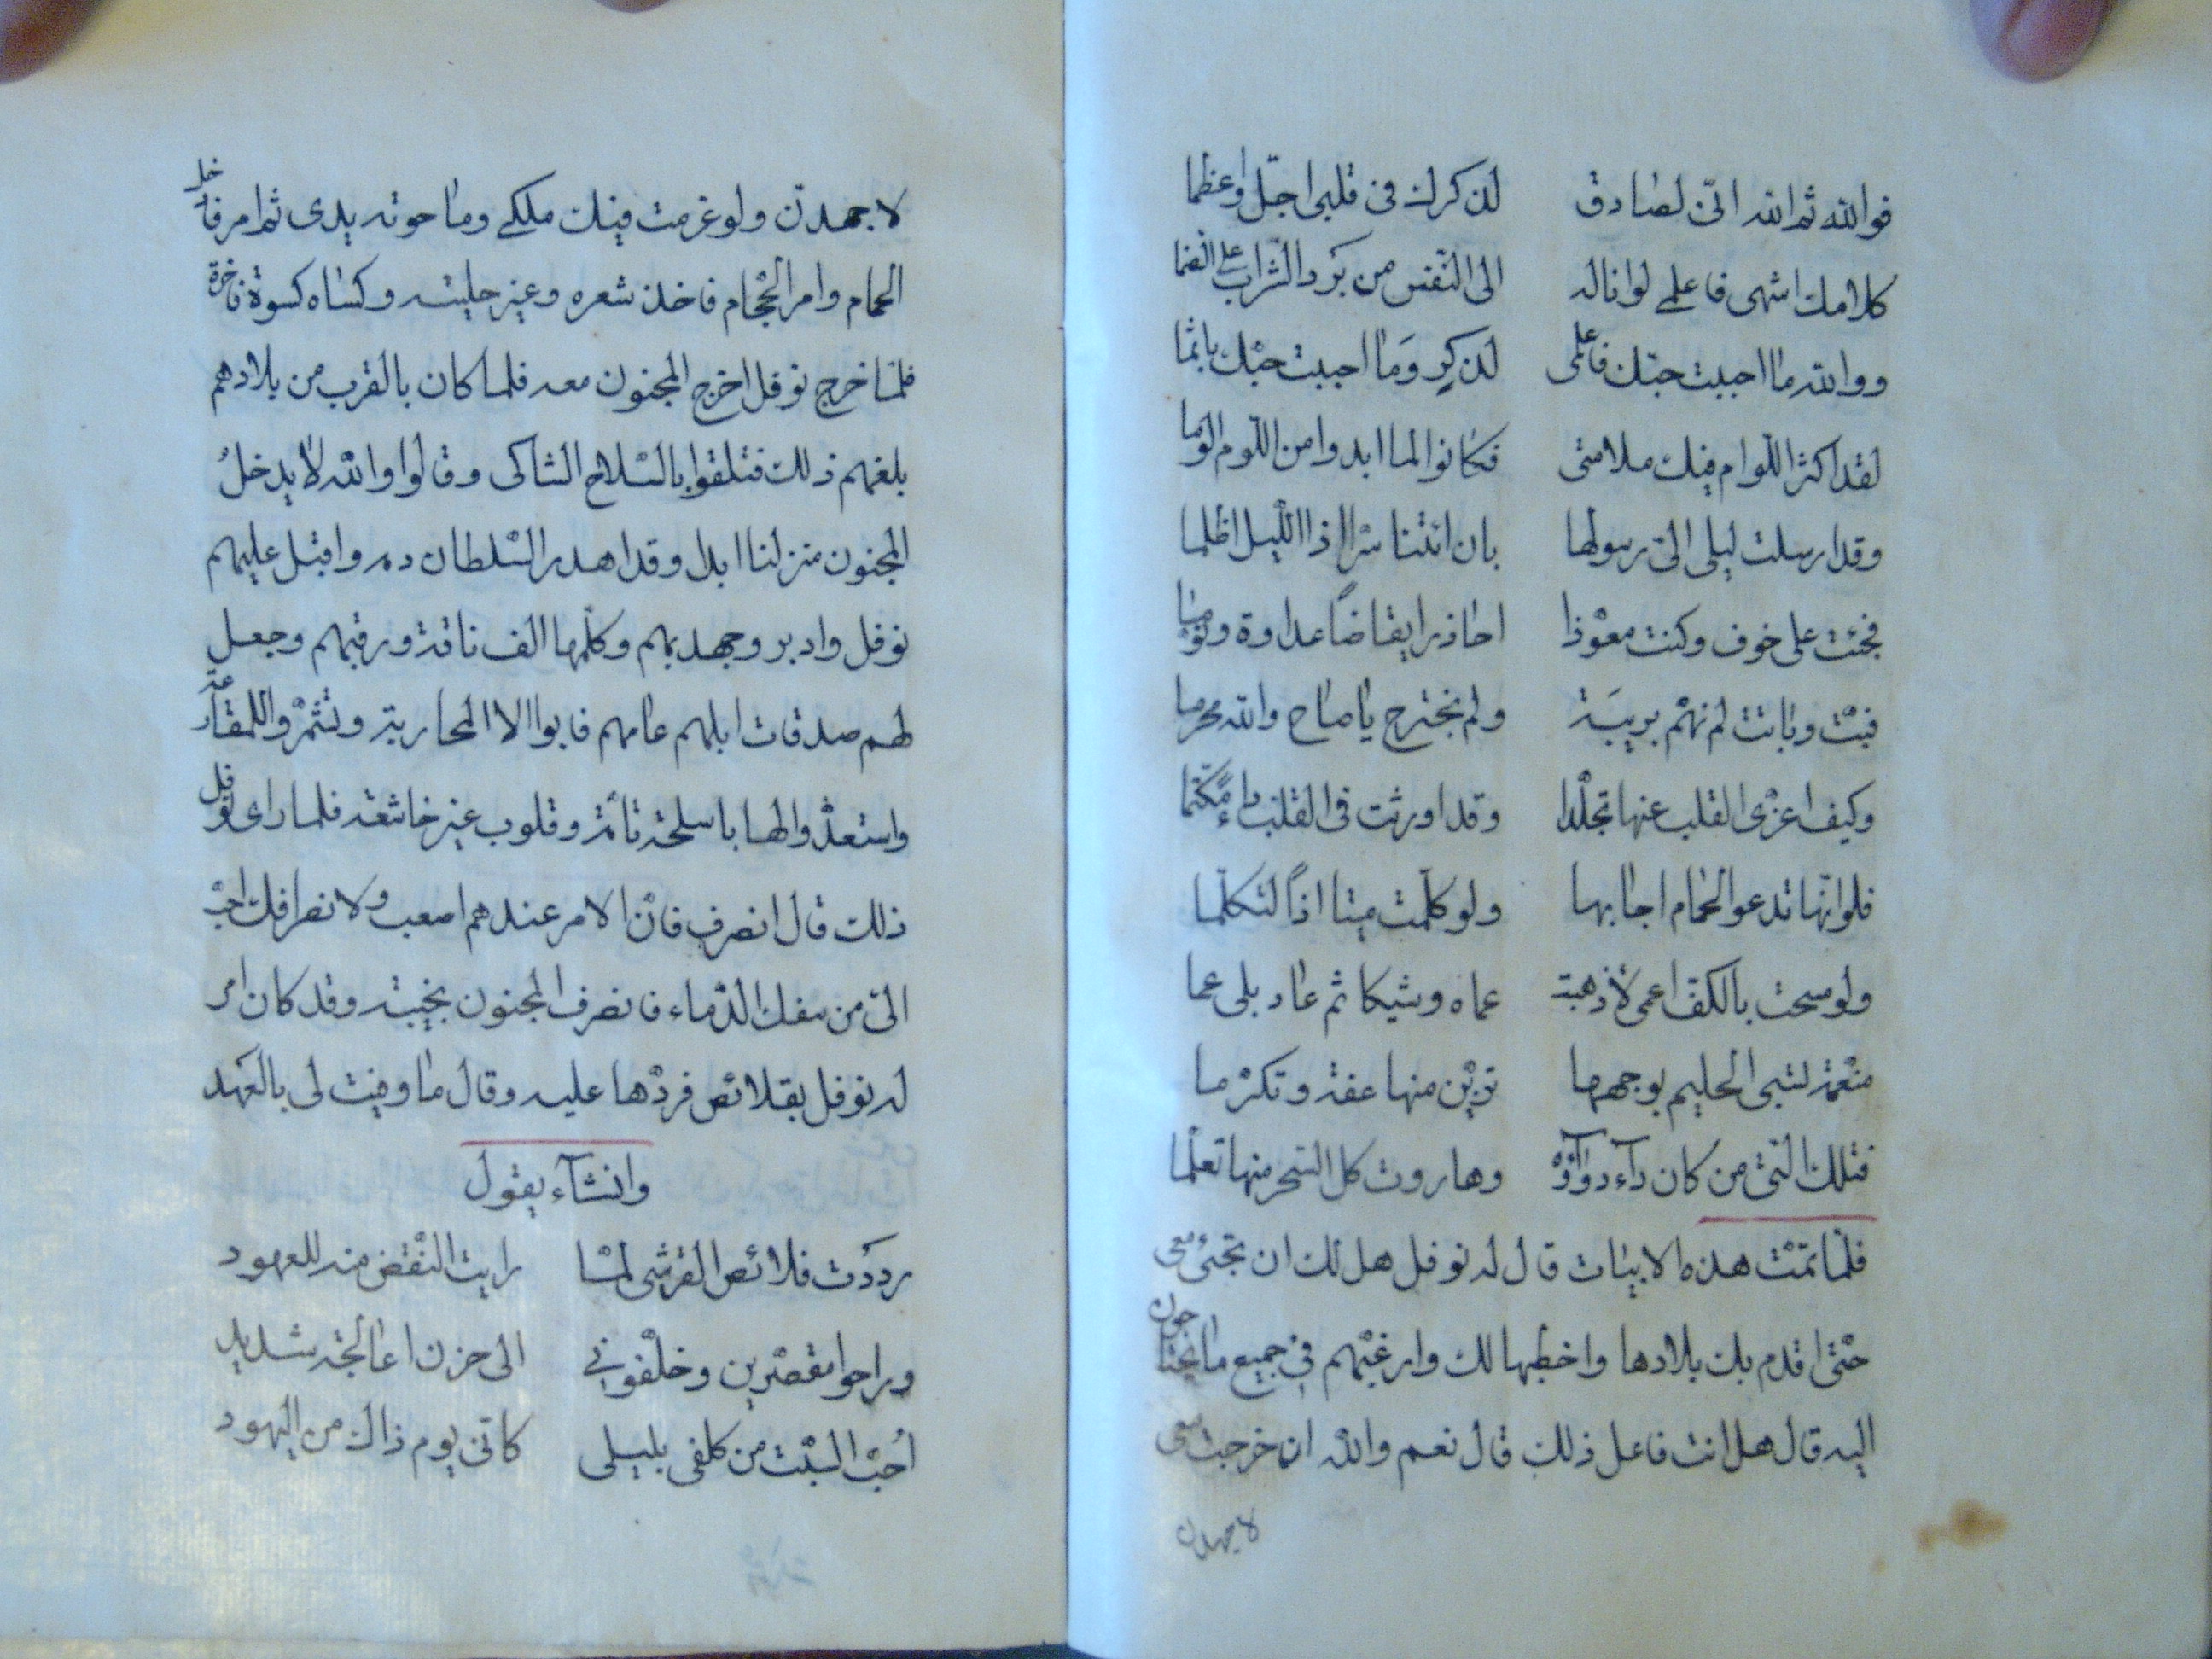 فوالله ثم الله انى لصادق لذكرك فى قلبى اجل واعظما
كلامك اشهى فاعلمى لو اناله الى النفس من برد الشراب على الضما
ووالله ما احببت حبك فاعلمى لذكر وما احببت حبك باثما
لقد اكثر اللوام فيك ملامتى فكانوا لما ابدوا من اللوم الوما
وقد ارسلت ليلى الى رسولها بان ائتنا سرا اذا الليل اظلما
فجئت على خوف وكنت معوذا احاذر ايقاضا عداوة ونوما
فبت وباتت لم نهم بريبة ولم نجترح يا صاح والله محرما
وكيف اعزى القلب عنها تجلدا وقد اورثت فى القلب داء مكتما
فلو انها تدعو الحمام اجابها ولو كلمت ميتا اذا لتكلما
ولو مسحت بالكف اعمى لاذهبت عماه وشيكا ثم عاد بلى عما
منعمة لتبى الحليم بوجهها تزين منها عفة وتكرما
فتلك التى من كان داء دواؤه وهاروت كل السحر منها تعلما
فلما تمت هذه الابيات قال له نوفل هل لك ان تجئ معى
حتى اقدم بك بلادها واخطبها لك وارغبهم فى جميع ما يحتاجون
اليه قال هل انت فاعل ذلك قال نعم والله ان خرجت معى
لاجهدن
لاجهدن ولو غرمت فيك ملكى وما حوته يدى ثم امر فادخل
الحمام وامر الحجام فاخذ شعره وغير حليته وكساه كسوة فاخرة
فلما خرج نوفل اخرج المجنون معه فلما كان بالقرب من بلادهم
بلغهم ذلك فتلقوا بالسلاح الشاكى وقالوا والله لا يدخل
المجنون منزلنا ابدا وقد اهدر السلطان دمه واقبل عليهم
نوفل وادبر وجهد بهم وكلمها الف ناقة ورقيهم وجعل
لهم صدقات ابلهم عامهم فابوا الا المحاربة وتشمروا للمقارعة
واستعدوا لها باسلحة تامة وقلوب غير خاشعة فلما راى نوفل
ذلك قال انصرف فان الامر عندهم اصعب ولانصرافك احب
الى من سفك الدماء فانصرف المجنون بخيبته وقد كان امر
له نوفل بقلائص فردها عليه وقال ما وفيت لى بالعهد
وانشآء يقول
رددت قلائص القرشى لما رايت النقض منه للعهود
وراحوا مقصرين وخلفونى الى حزن اعالجه شديد
احب السبت من كلفى بليلى كانى يوم ذاك من اليهود